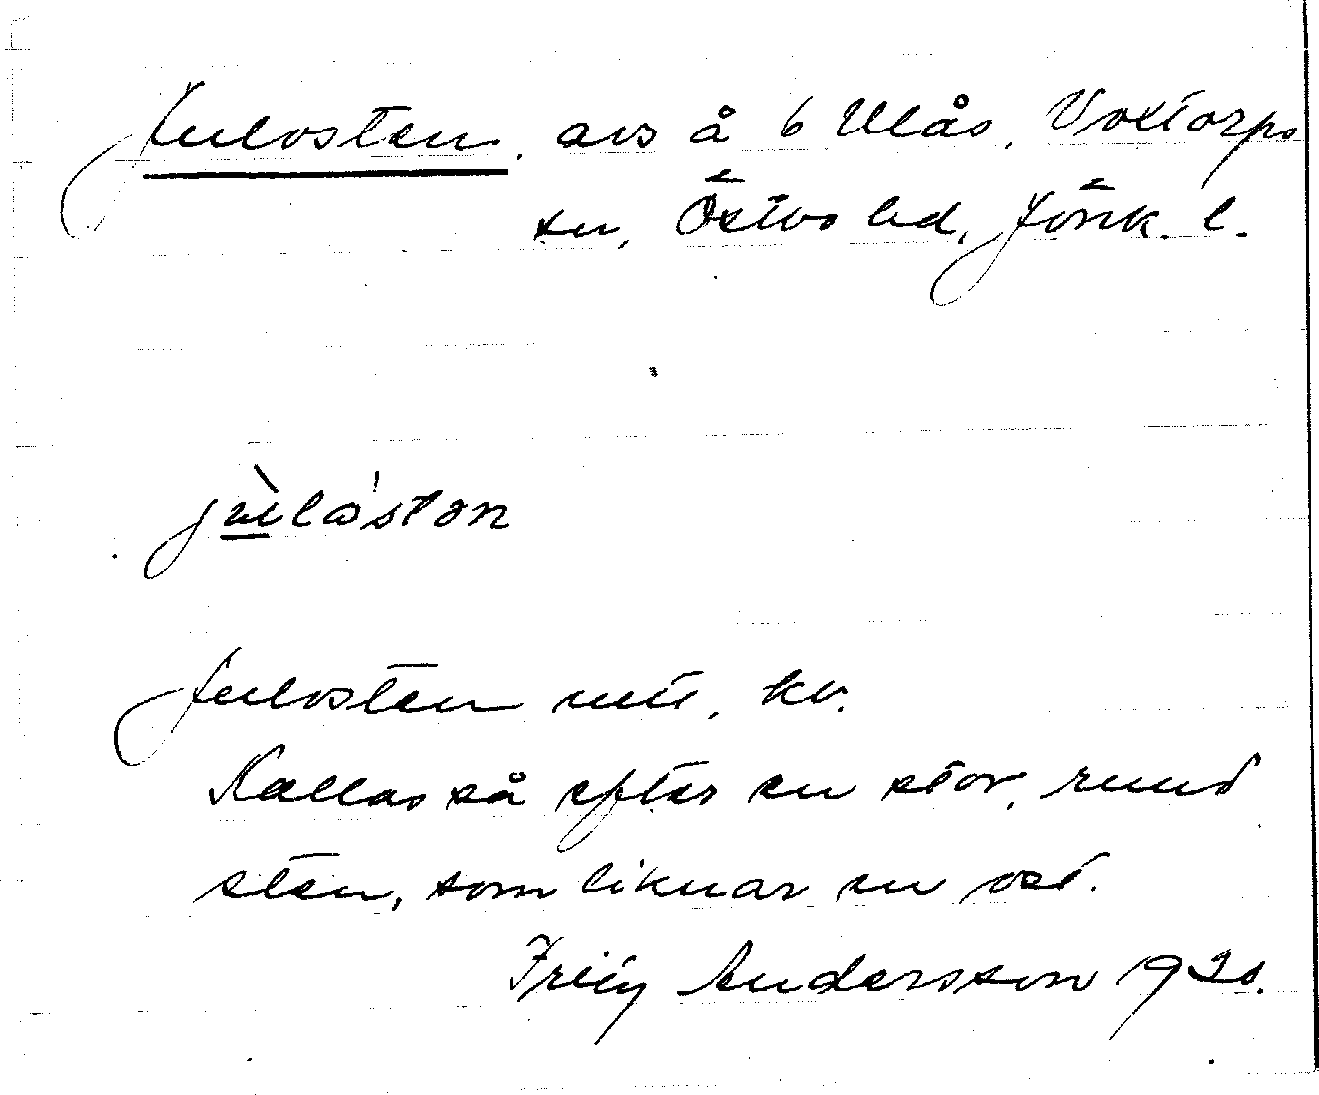 Julosten, avs å 6 Ulås, Voxtorps
sn, Östbo hd, Jönk. l.
jùlåstən
Julosten mtr, kv.
Kallas så efter en stor, rund
sten, som liknar en ost.
Andersson 1930.